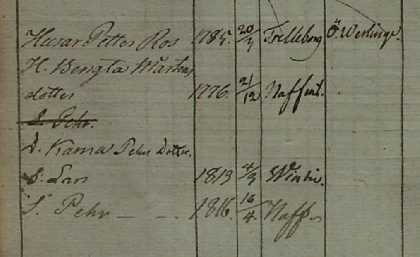 Husar Petter Ros 1785. 20/7 Trelleborg Ö. Werlinge.
H. Bengta Mårtens
dotter 1776. 21/12 Näffint.
S. Pehr.
D. Karna Pehrs Dotter.
S. Lars 1813 4/9 Wintie.
S. Pehr — 1816. 16/4 Näff